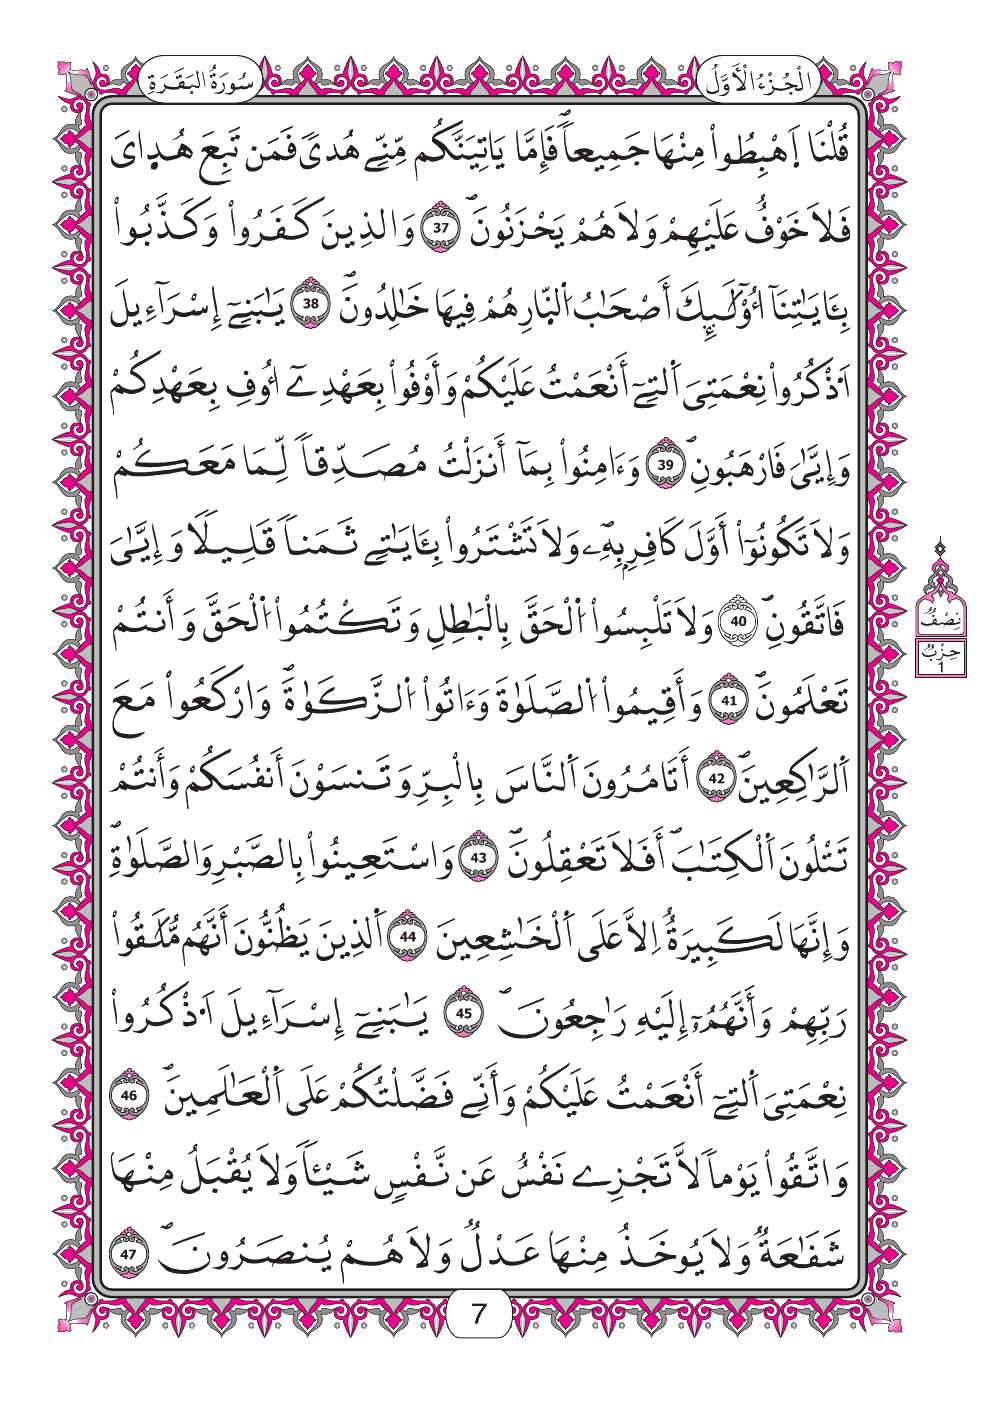 الْجُزْءُ الْأَوَّلُ
سُورَةُ الْبَقَرَةِ
قُلْنَا اَهْبِطُواْ مِنْهَا جَمِيعاًۖ فَإِمَّا يَاتِيَنَّكُم مِّنِّے هُدىً فَمَن تَبِعَ هُد۪ايَ
فَلَا خَوْفٌ عَلَيْهِمْ وَلَا هُمْ يَحْزَنُونَۖ 37 وَالذِينَ كَفَرُواْ وَكَذَّبُواْ
بِـَٔايَٰتِنَآ أُوْلَٰٓئِكَ أَصْحَٰبُ اُ۬لنّ۪ارِ هُمْ فِيهَا خَٰلِدُونَۖ 38 يَٰبَنِےٓ إِسْرَآءِيلَ
اَ۟ذْكُرُواْ نِعْمَتِيَ اَ۬لتِےٓ أَنْعَمْتُ عَلَيْكُمْ وَأَوْفُواْ بِعَهْدِےٓ أُوفِ بِعَهْدِكُمْ
وَإِيَّٰيَ فَارْهَبُونِۖ 39 وَءَامِنُواْ بِمَآ أَنزَلْتُ مُصَدِّقاً لِّمَا مَعَكُمْ
وَلَا تَكُونُوٓاْ أَوَّلَ كَافِرٍۢ بِهِۦۖ وَلَا تَشْتَرُواْ بِـَٔايَٰتِے ثَمَناً قَلِيلًا وَإِيَّٰيَ
فَاتَّقُونِۖ 40 وَلَا تَلْبِسُواْ اُ۬لْحَقَّ بِالْبَٰطِلِ وَتَكْتُمُواْ اُ۬لْحَقَّ وَأَنتُمْ
تَعْلَمُونَۖ 41 وَأَقِيمُواْ اُ۬لصَّلَوٰةَ وَءَاتُواْ اُ۬لزَّكَوٰةَۖ وَارْكَعُواْ مَعَ
اَ۬لرَّٰكِعِينَۖ 42 أَتَامُرُونَ اَ۬لنَّاسَ بِالْبِرِّ وَتَنسَوْنَ أَنفُسَكُمْ وَأَنتُمْ
تَتْلُونَ اَ۬لْكِتَٰبَۖ أَفَلَا تَعْقِلُونَۖ 43 وَاسْتَعِينُواْ بِالصَّبْرِ وَالصَّلَوٰةِۖ
وَإِنَّهَا لَكَبِيرَةٌ اِلَّا عَلَى اَ۬لْخَٰشِعِينَ 44 اَ۬لذِينَ يَظُنُّونَ أَنَّهُم مُّلَٰقُواْ
رَبِّهِمْ وَأَنَّهُمُۥٓ إِلَيْهِ رَٰجِعُونَۖ 45 يَٰبَنِےٓ إِسْرَآءِيلَ اَ۟ذْكُرُواْ
نِعْمَتِيَ اَ۬لتِےٓ أَنْعَمْتُ عَلَيْكُمْ وَأَنِّے فَضَّلْتُكُمْ عَلَى اَ۬لْعَٰلَمِينَۖ 46
وَاتَّقُواْ يَوْماً لَّا تَجْزِے نَفْسٌ عَن نَّفْسٍ شَيْـٔاً وَلَا يُقْبَلُ مِنْهَا
شَفَٰعَةٌ وَلَا يُوخَذُ مِنْهَا عَدْلٌ وَلَا هُمْ يُنصَرُونَۖ 47
نِصْفُ
حِزْبُ
1
7